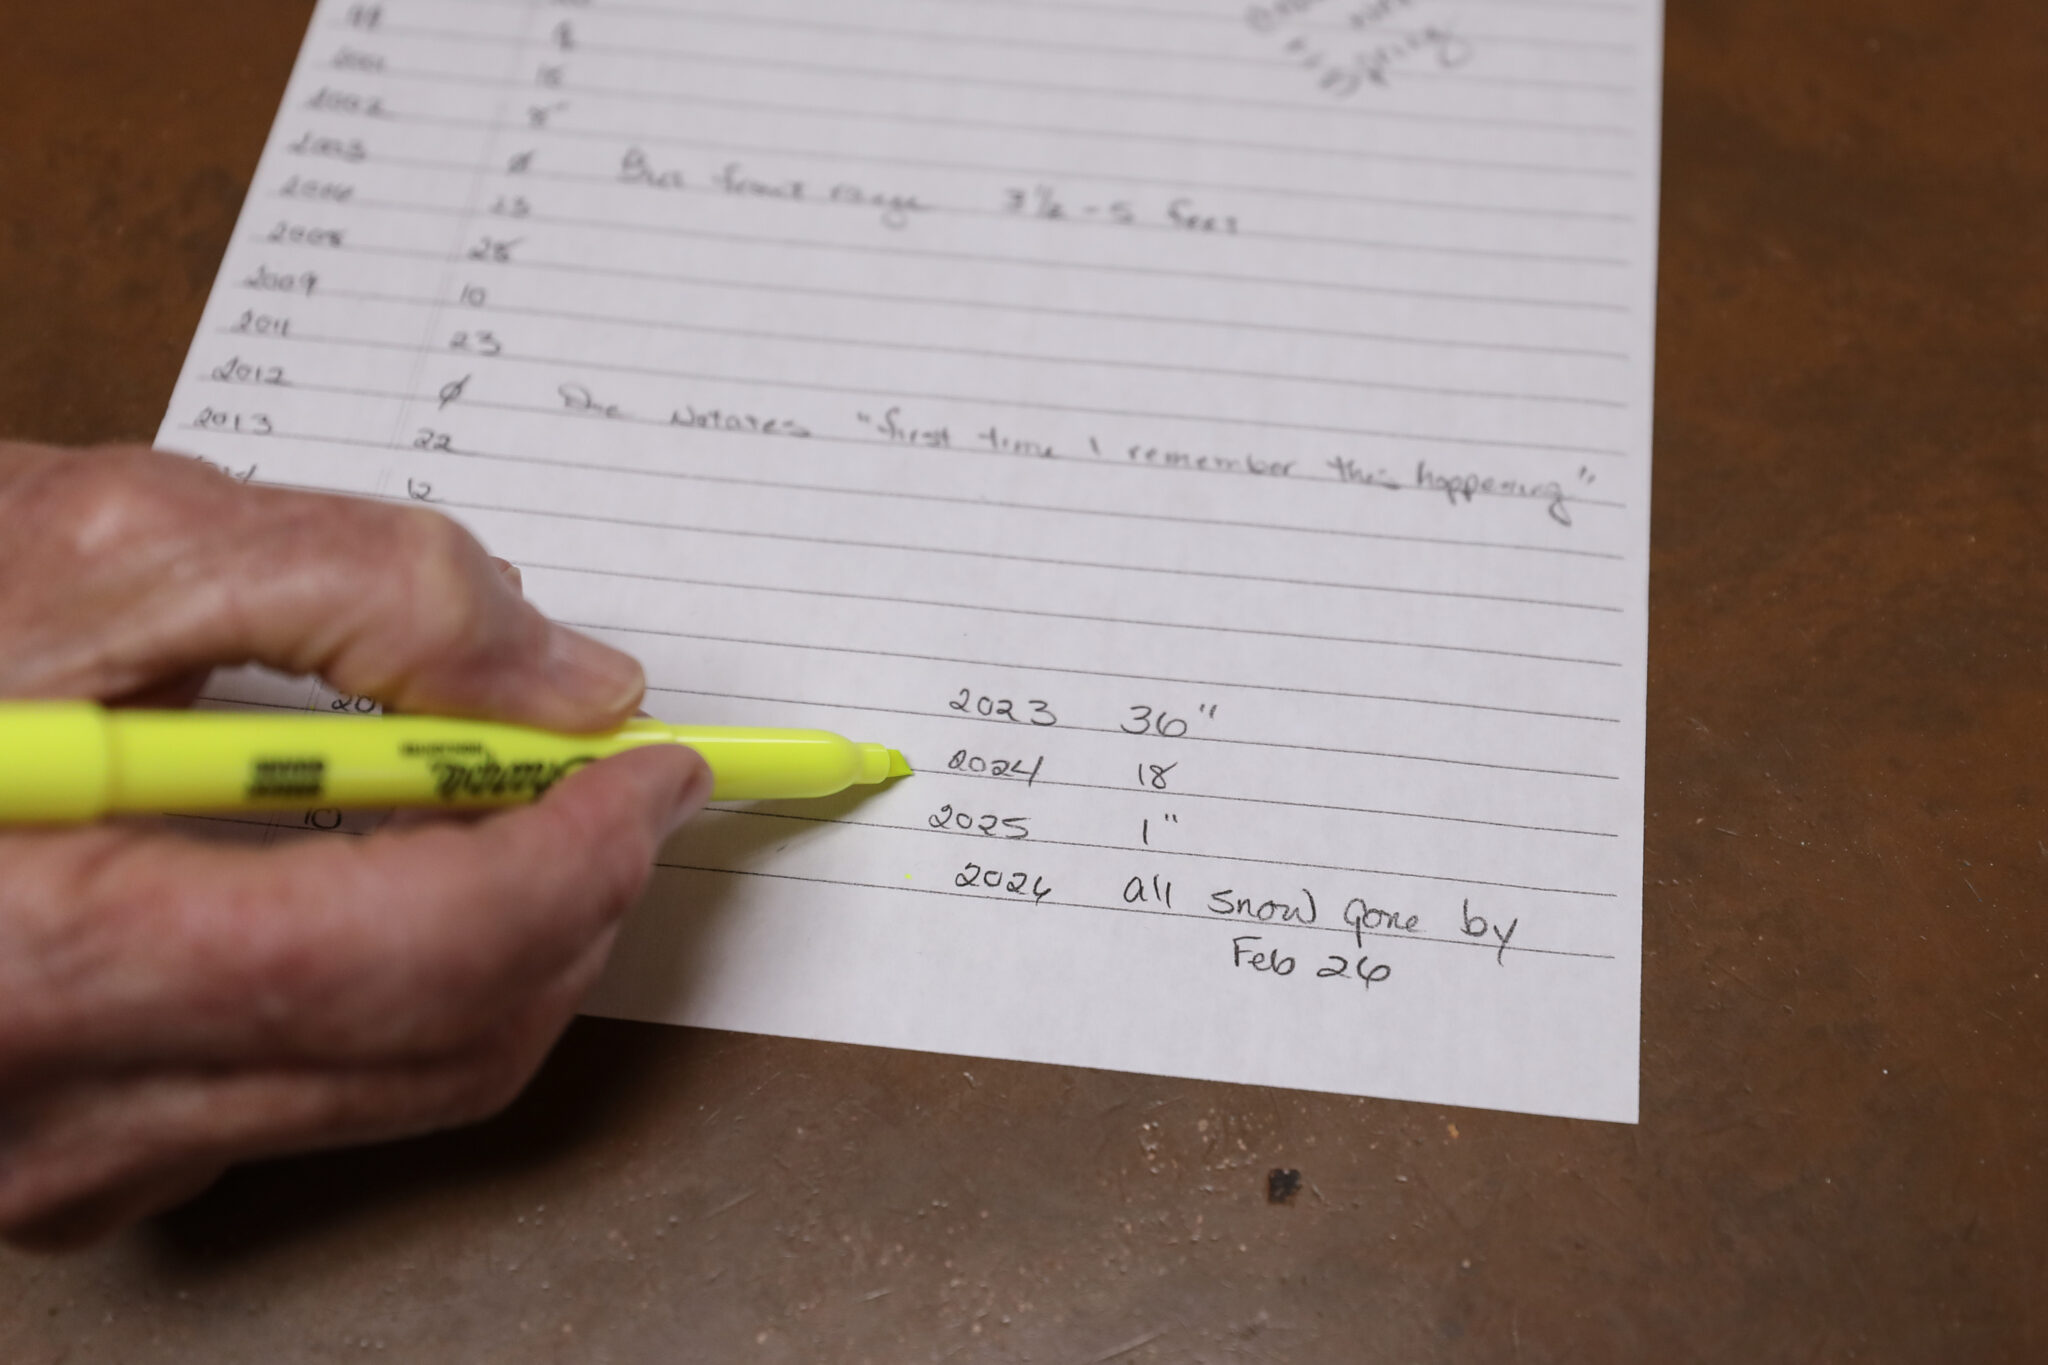 Spring
99 8
2001 16
2002 8"
2003 ∅ But front range 3½ - 5 feet
2006
2008 28
2009 10
2011 23
2012 ∅ Doc Notates "first time I remember this happening"
2013 22
12
20
10
2023 36"
2024 18
2025 1"
2026 all snow gone by
Feb 26
Sharpie